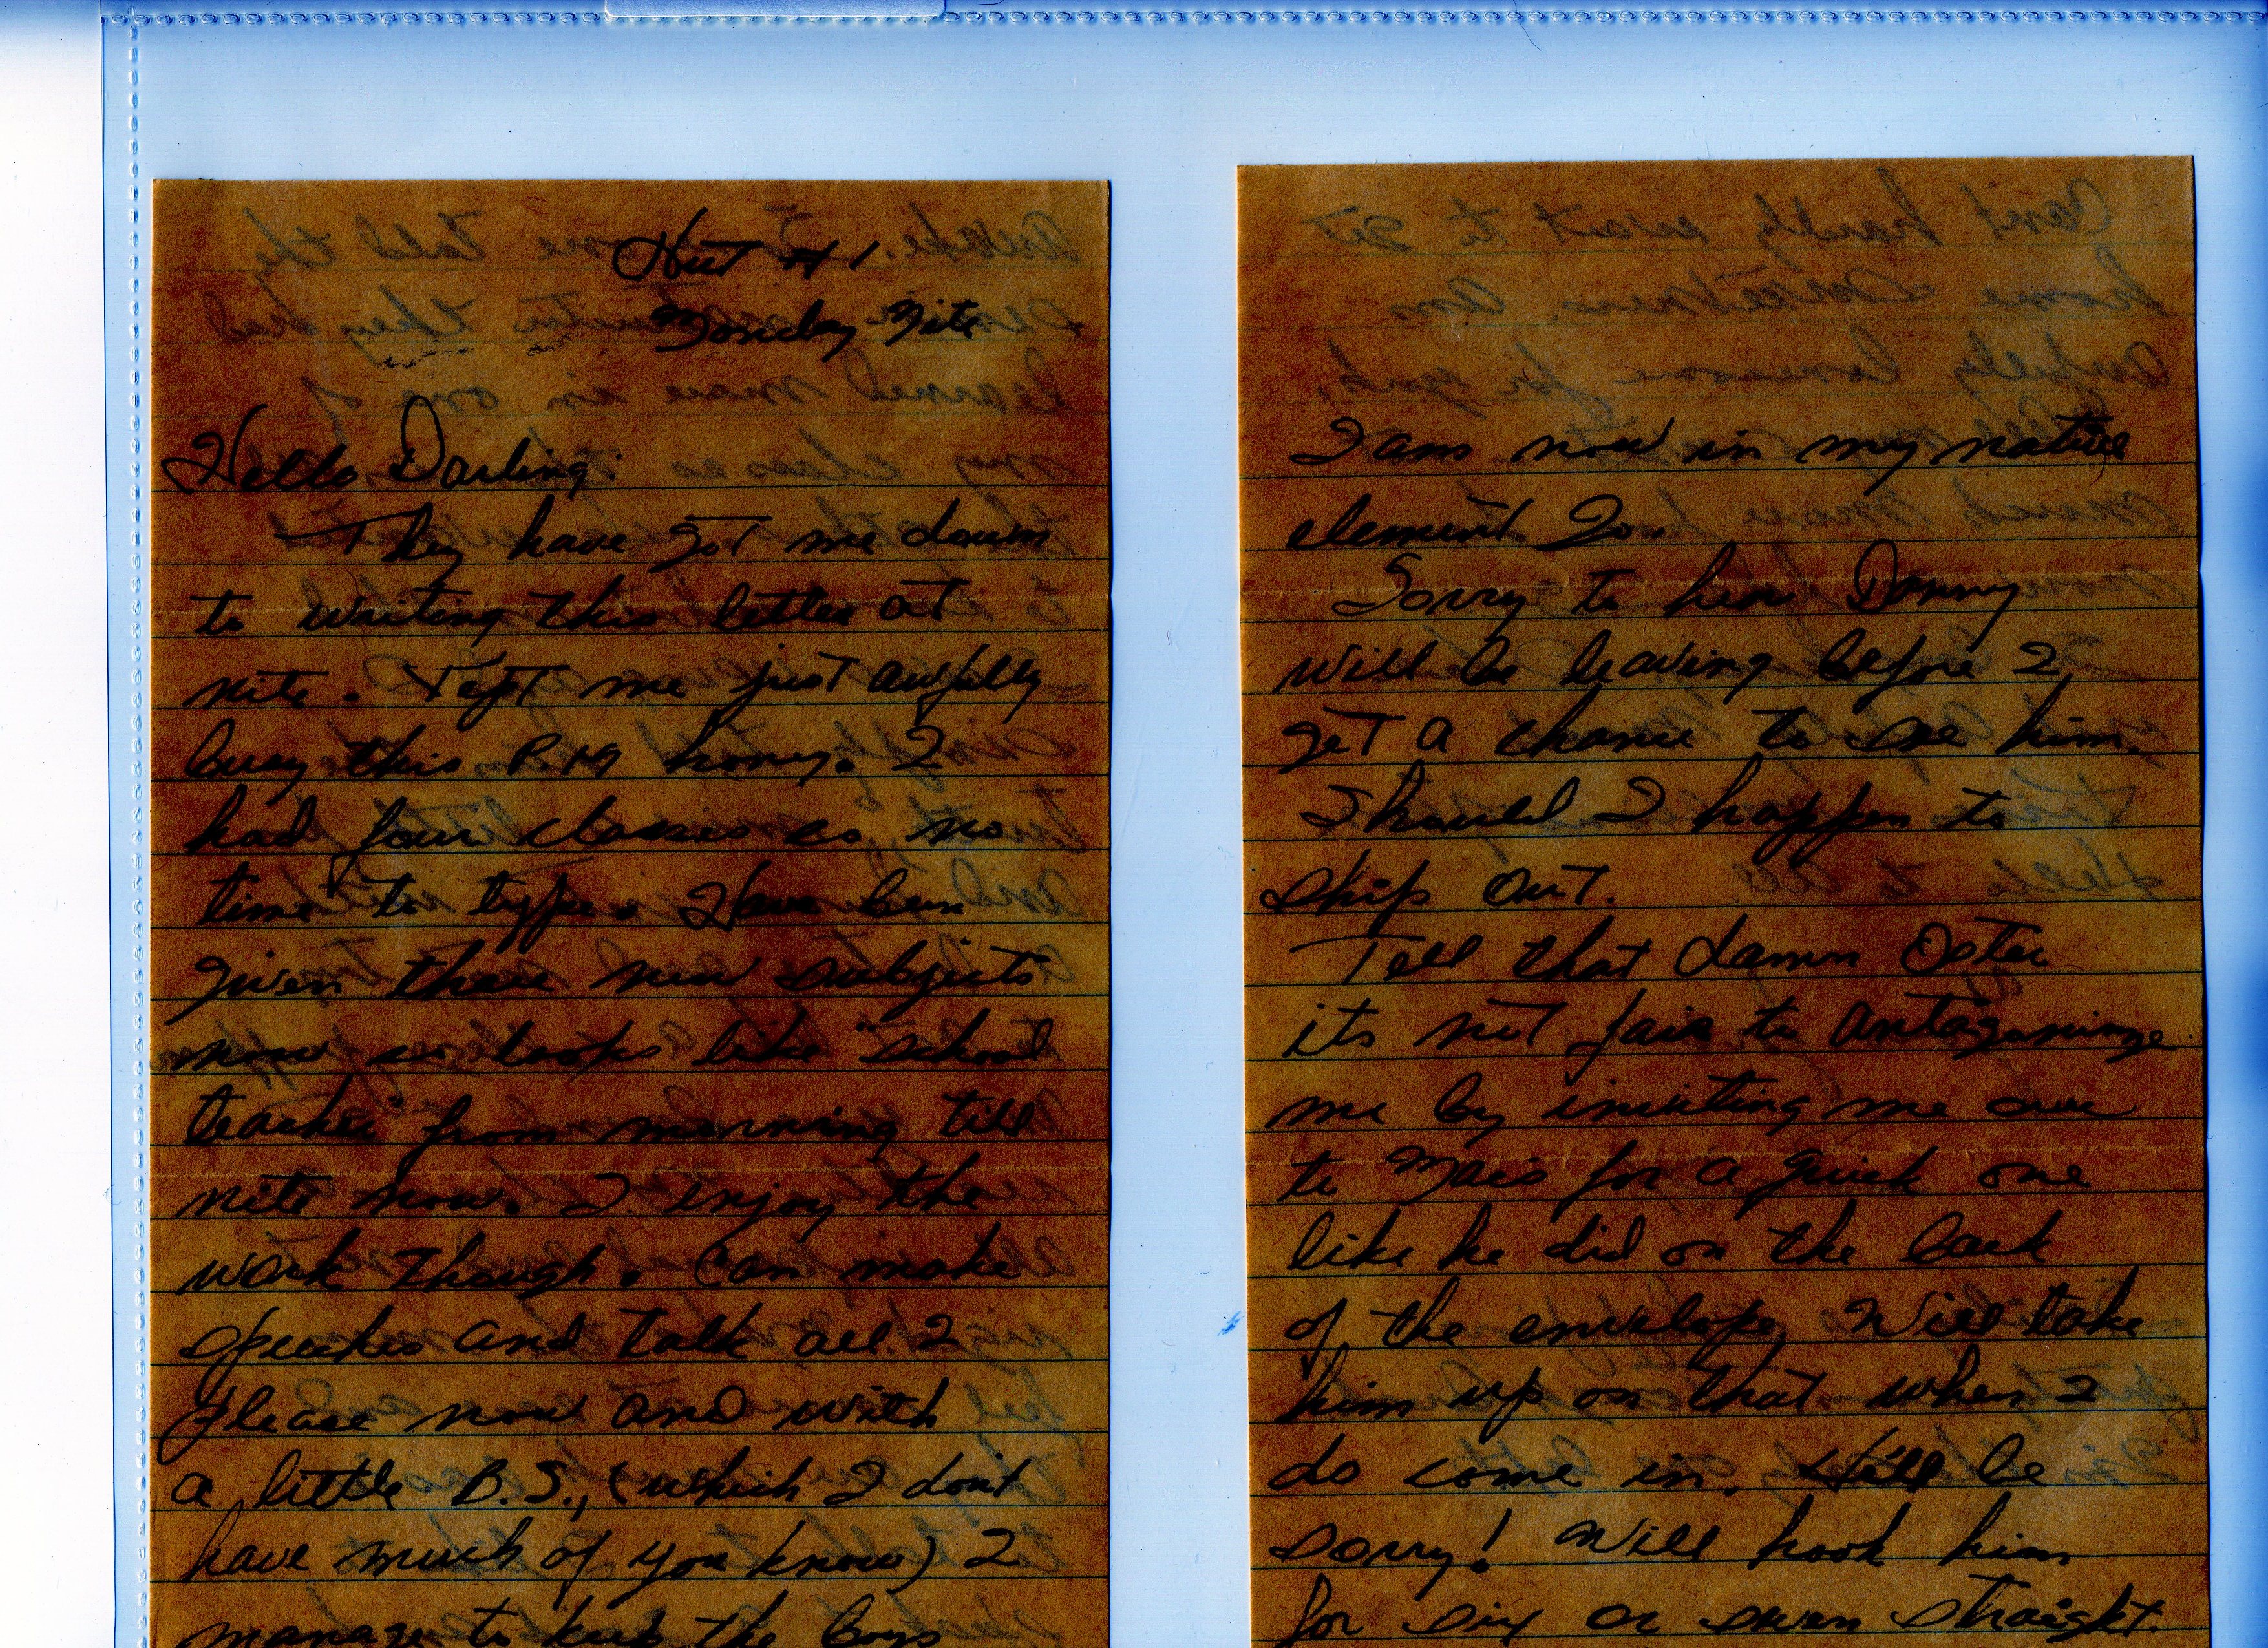 Hut #1
Monday Nite.
Hello Darling:
They have got me down
to writing this letter at
nite. Kept me just awfully
busy this P.M honey. I
had four classes so no
time to type. Have been
given three new subjects
now so looks like "school
teacher" from morning till
nite now. I enjoy the
work though. Can make
speeches and talk all I
please now and with
a little B.S., (which I don't
have much of you know) I
manage to keep the boys
I am now in my native
element
Sorry to hear Danny
will be leaving before I
get a chance to see him.
Should I happen to
ship out.
Tell that damn
its not fair to antagonize
me by inviting me over
to for a quick one
like he did on the back
of the envelope. Will take
him up on that when I
do come in. He'll be
sorry! Will hook him
for six or seven straight.